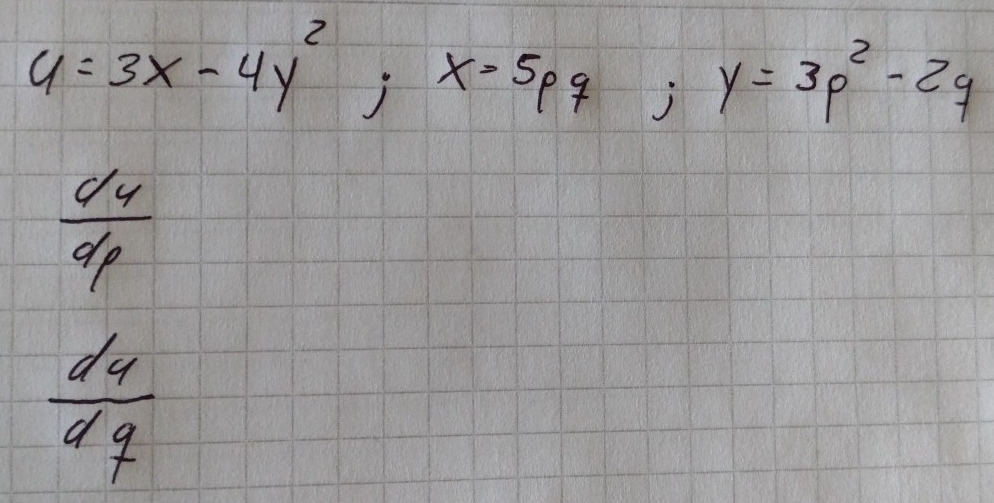 u = 3x - 4y² ; x = 5pq ; y = 3p² - 2q
du
dp
du
dq